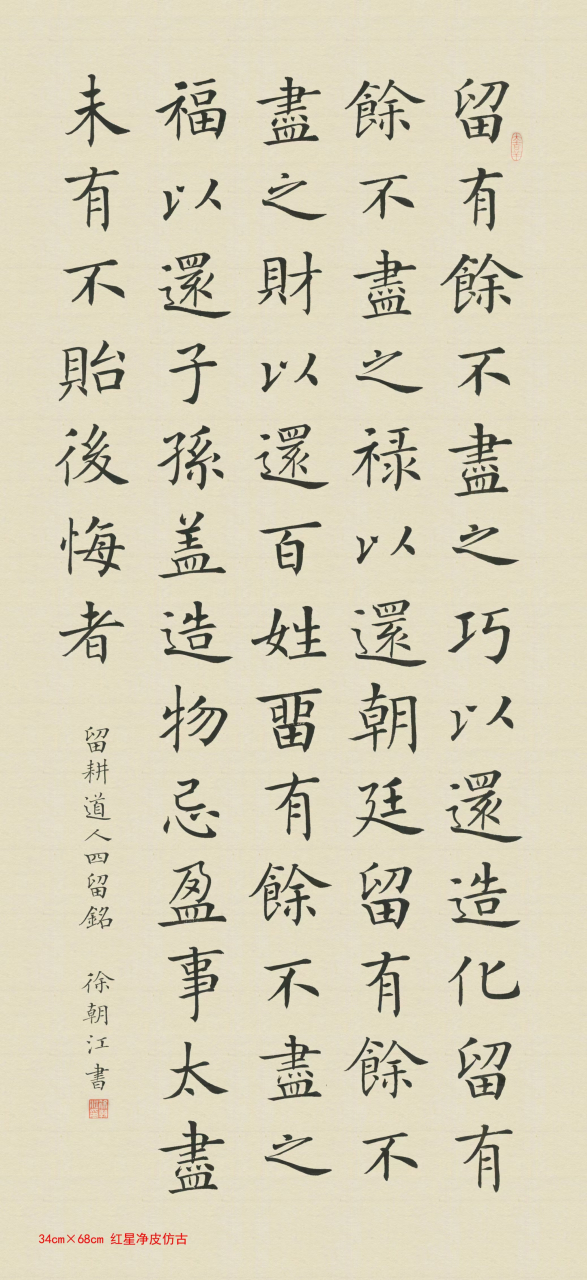 留有餘不盡之巧以還造化留有
餘不盡之禄以還朝廷留有餘不
盡之財以還百姓畱有餘不盡之
福以還子孫盖造物忌盈事太盡
未有不貽後悔者
留耕道人四留銘 徐朝江書
34cm×68cm 红星净皮仿古